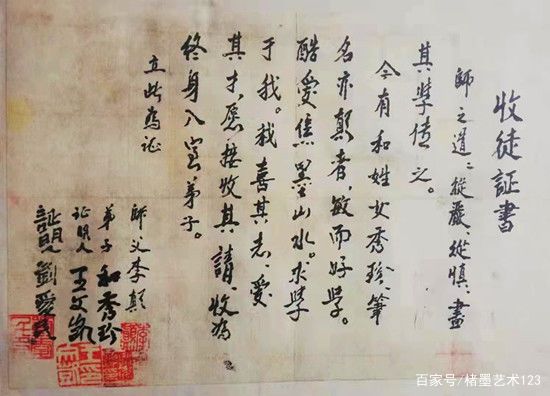 收徒証書
師之道:從嚴從慎,盡
其學傳之。
今有和姓女秀珍,筆
名亦顛者,敏而好學。
酷愛焦墨山水。求學
于我。我喜其志、愛
其才,愿接收其請,收为
終身入室弟子。
立此為证
師父李顛
弟子和秀珍
证明人王文
証明劉愛民
百家号/楮墨艺术123